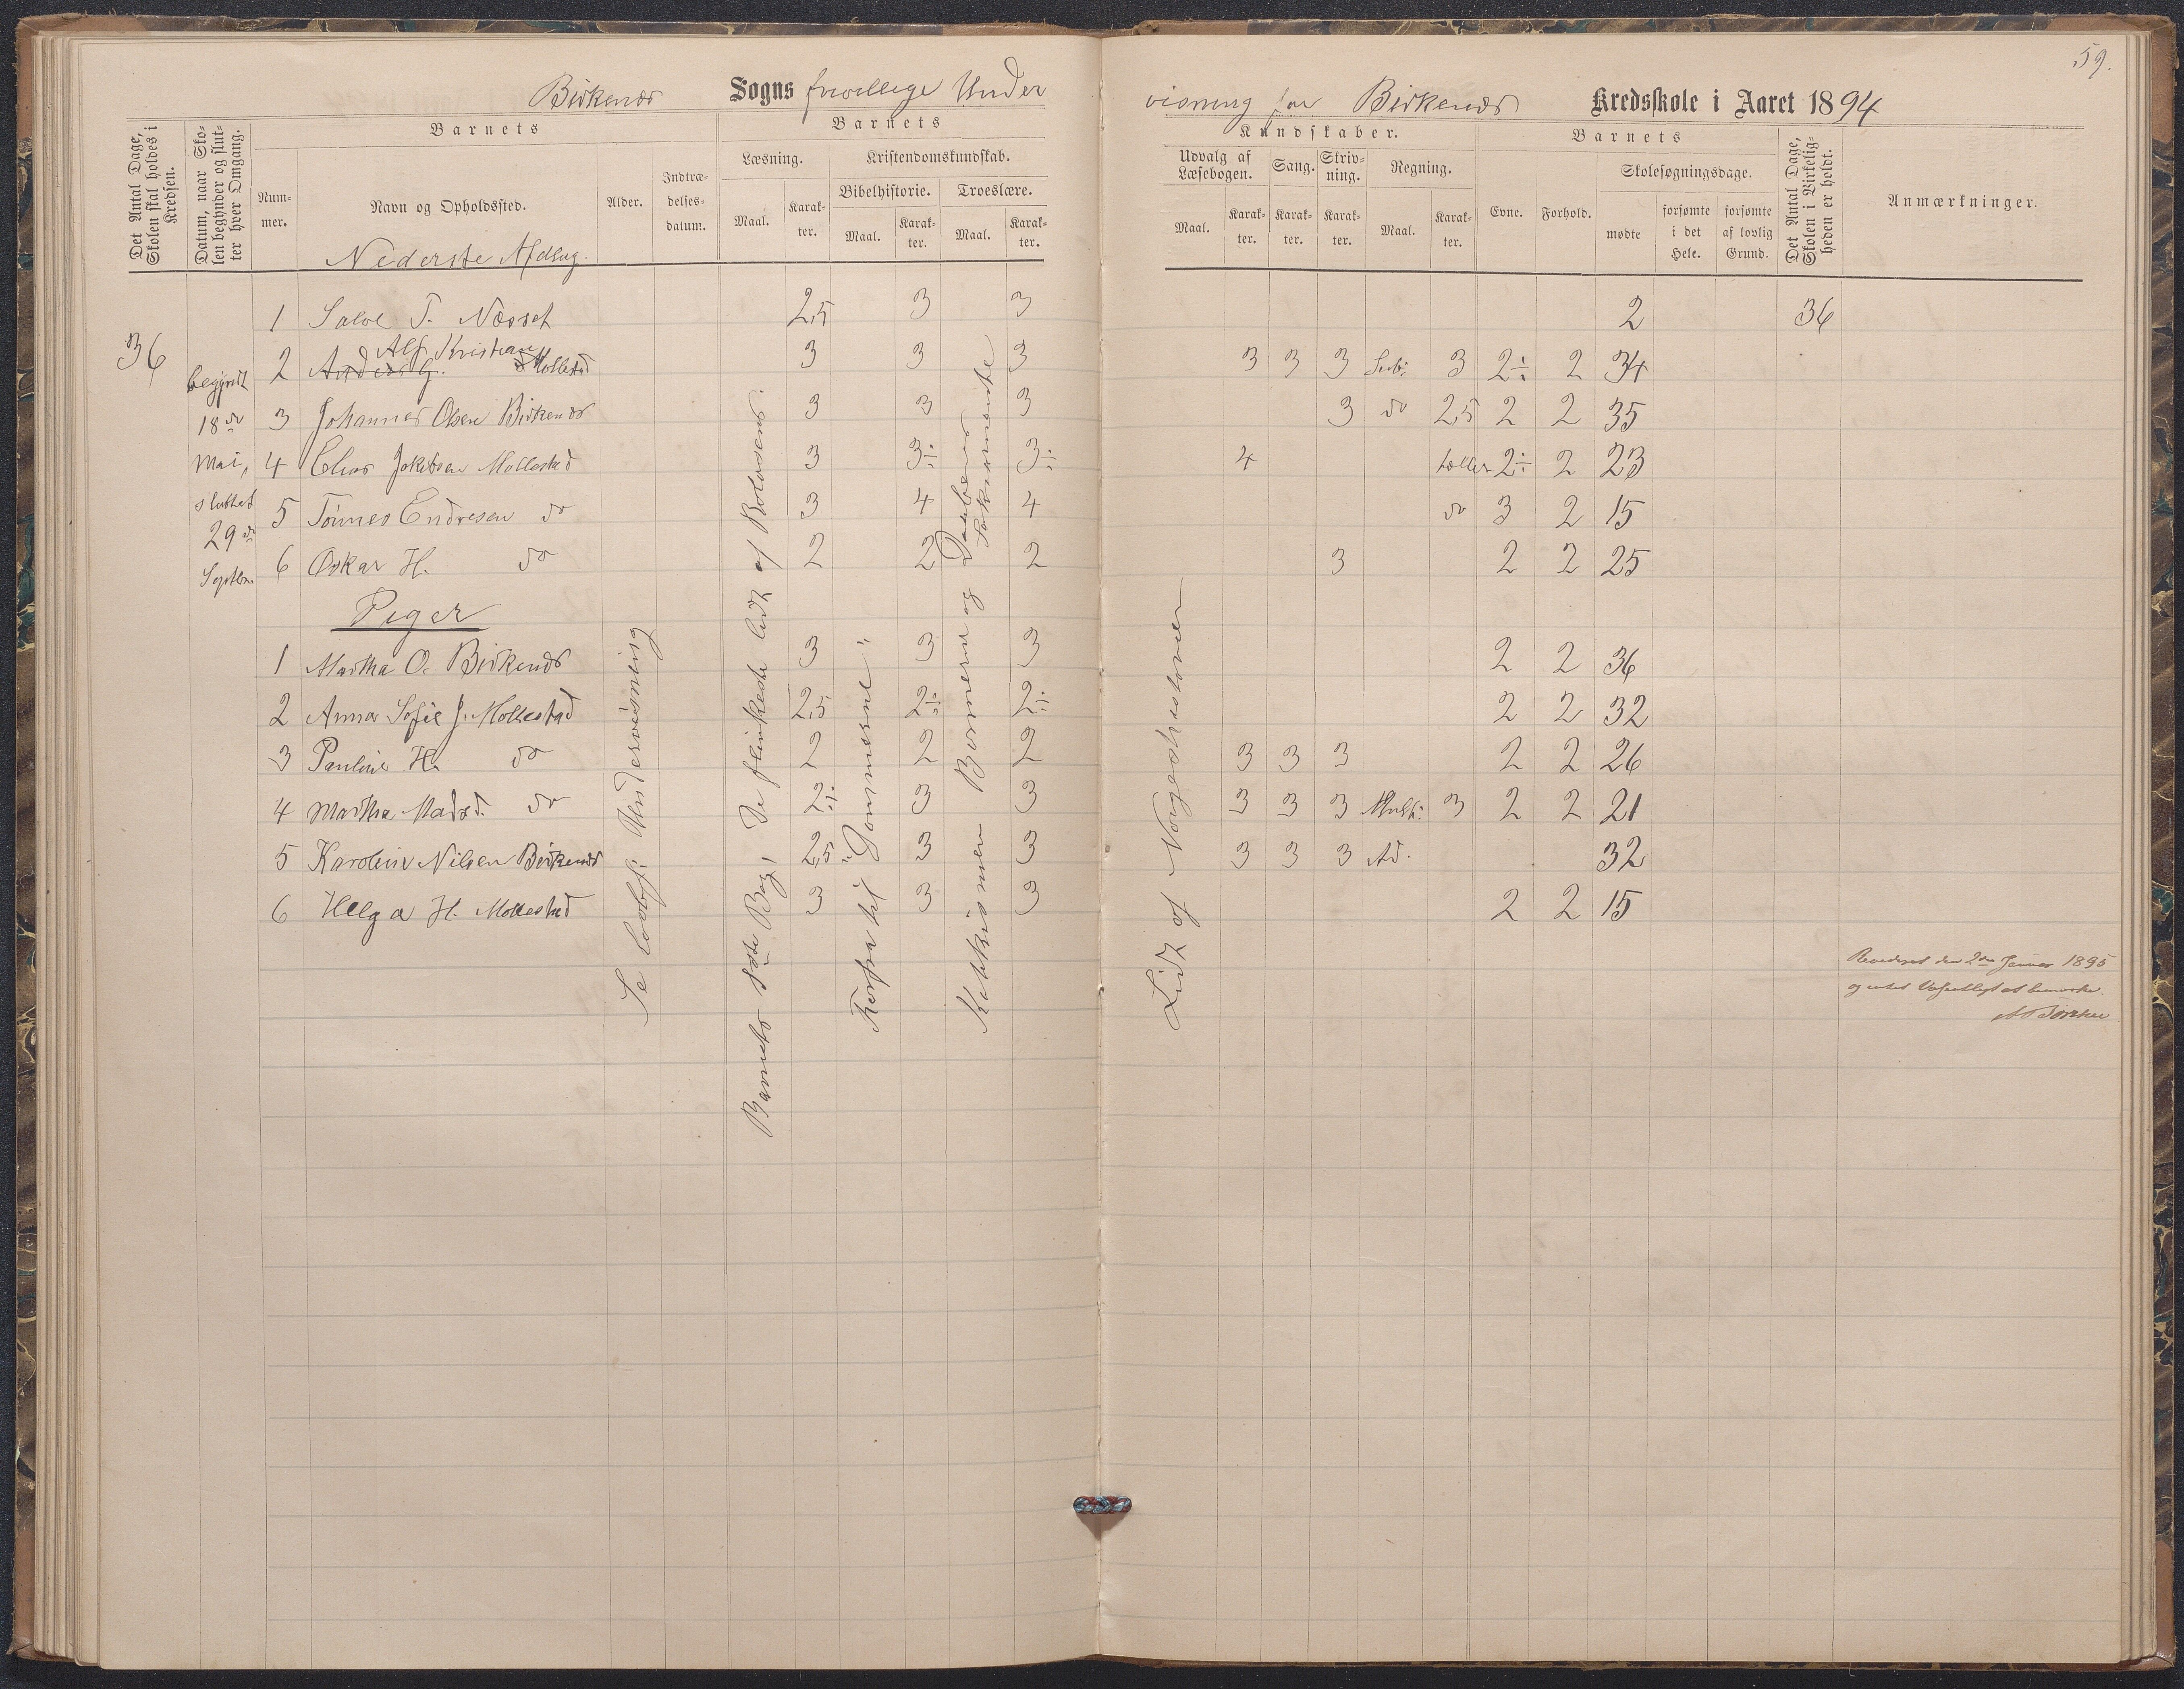 59.
Birkenæs Sogns frivillige Under
visning for Birkenæs Kredsskole i Aaret 1894
Det Antal Dage, Skolen skal holdes i Kredsen.
Datum, naar Skolen begynder og slutter hver Omgang.
Barnets
Nummer.
Navn og Opholdssted.
Alder.
Indtrædelsesdatum.
Barnets
Læsning.
Maal.
Karakter.
Kristendomskundskab.
Bibelhistorie.
Maal.
Karakter.
Troeslære.
Maal.
Karakter.
Kundskaber.
Udvalg af Læsebogen.
Maal.
Karakter.
Sang.
Karakter.
Skrivning.
Karakter.
Regning.
Maal.
Karakter.
Barnets
Evne.
Forhold.
Skolesøgningsdage.
mødte
forsømte i det Hele.
forsømte af lovlig Grund.
Det Antal Dage, Skolen i Virkeligheden er holdt.
Anmærkninger.
Nederste Afdling.
36
begyndt
18de
Mai,
sluttet
29de
Septbr.
1 Salve T. Næsset 2,5 3 3 2 36
Alf Kristian
2 Anders G. Mollestad 3 3 3 3 3 3 Sub: 3 2÷ 2 34
3 Johannes Olsen Birkenæs 3 3 3 3 do 2,5 2 2 35
4 Elias Jakobsen Mollestad 3 3÷ 3÷ 4 tæller 2÷ 2 23
5 Tønnes Endresen do 3 4 4 do 3 2 15
6 Oskar H. do 2 2 2 3 2 2 25
Piger
1 Martha O. Birkenæs 3 3 3 2 2 36
2 Anna Sofie J. Mollestad 2,5 2÷ 2÷ 2 2 32
3 Pauline H. do 2 2 2 3 3 3 2 2 26
4 Martha Madsd. do 2÷ 3 3 3 3 3 Mult: 3 2 2 21
5 Karoline Nilsen Birkenæs 2,5 3 3 3 3 3 Ad. 32
6 Helga H. Mollestad 3 3 3 2 2 15
Se lovbf: Undervisning
Barnets 1ste Bog, De flinkeste lidt af Rolvsens:
Forfra til "Dommerne"
Katekismen Børnene og Daabens Sakramente
Lidt af Norgeshistorien
Revideret den 2den Januar 1895
og intet Væsentligt at bemærke.